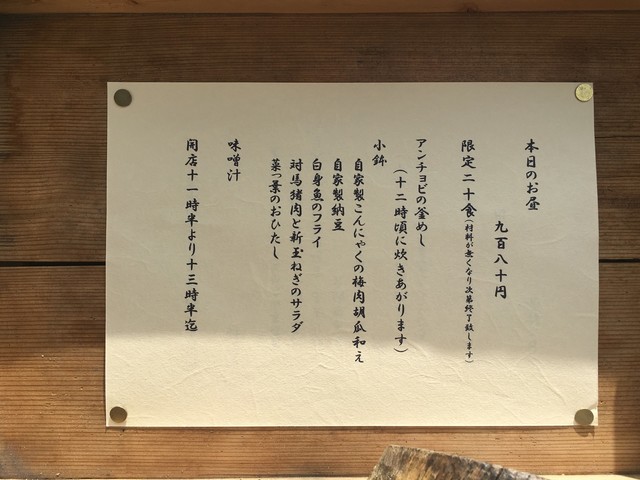 本日のお昼
九百八十円
限定二十食(材料が無くなり次第終了致します)
アンチョビの釜めし
(十二時頃に炊きあがります)
小鉢
自家製こんにゃくの梅肉胡瓜和え
自家製納豆
白身魚のフライ
対馬猪肉と新玉ねぎのサラダ
菜っ葉のおひたし
味噌汁
開店十一時半より十三時半迄